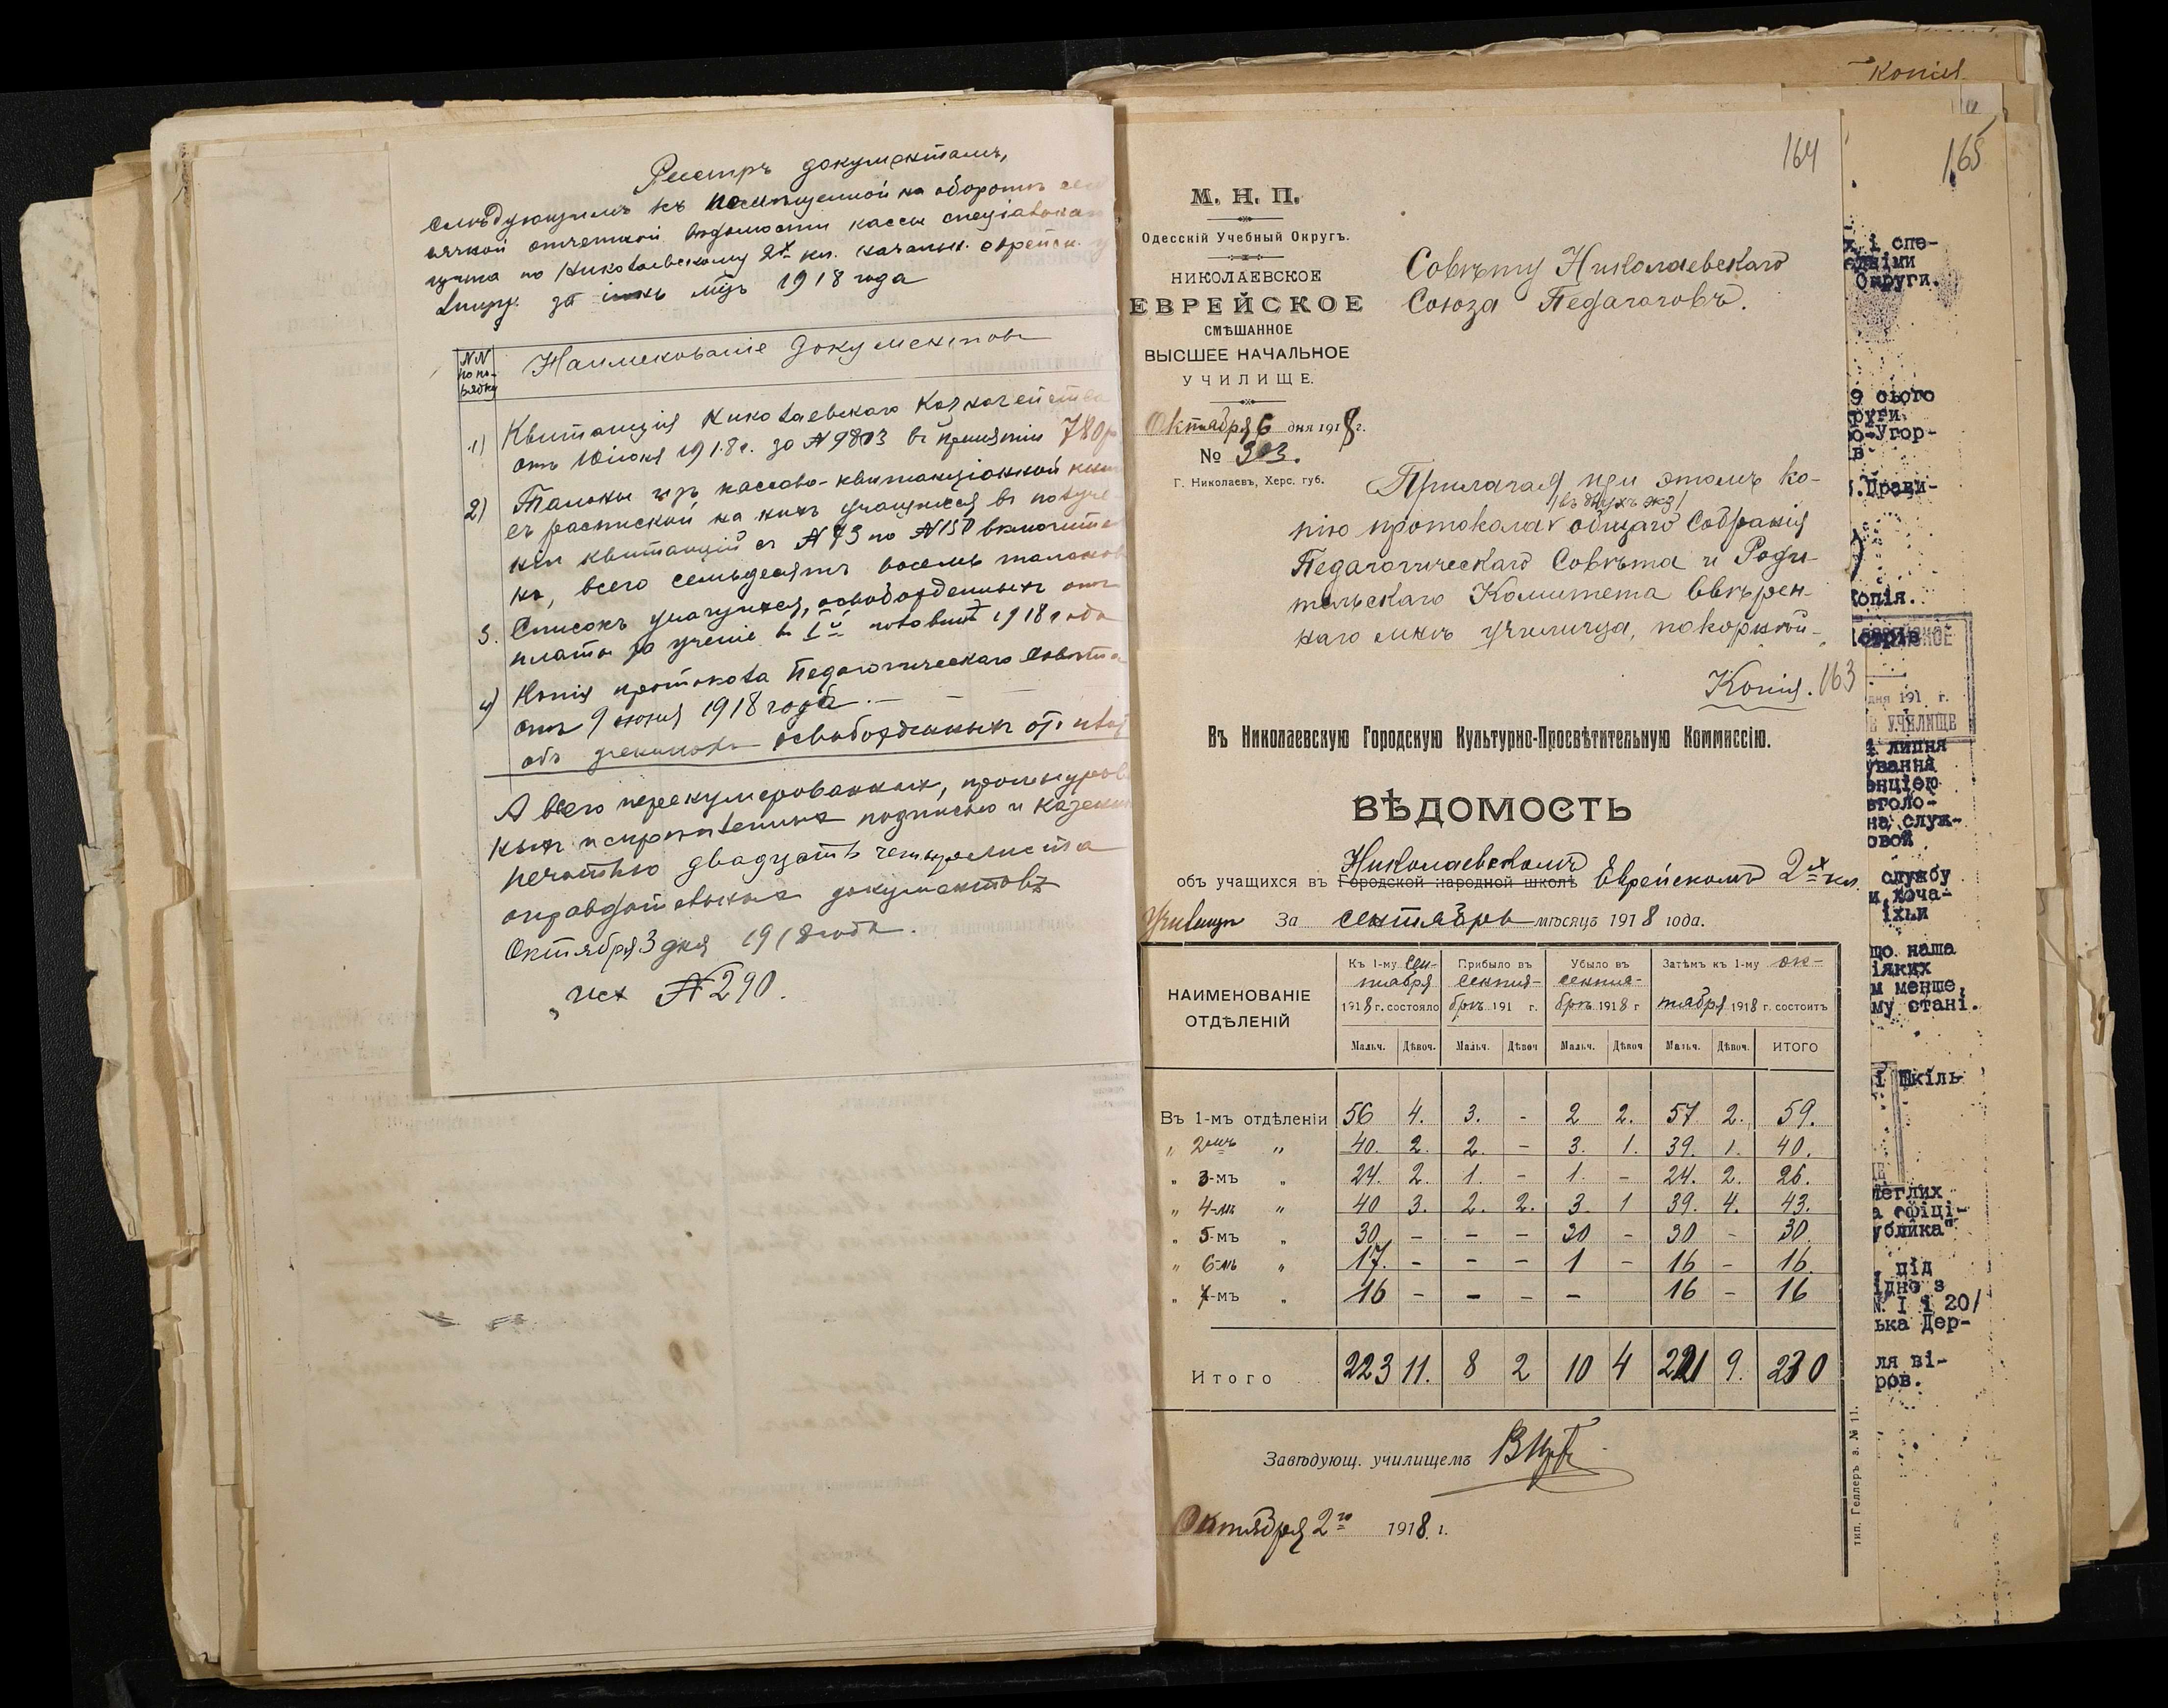 Реестръ документамъ,
слѣдующимъ къ помѣщенной на оборотѣ
отчетной вѣдомости кассы
по Николаевскому 2х кл. начальн. еврейск.
за мцъ 1918 года
NN по по-рядку
Наименованіе документовъ
1) Квитанція Николаевскаго Казначейства
отъ 1918г. за № 9803 въ принятіи 780р
2) Талоны изъ кассово-квитанціонной
съ распиской на нихъ учащихся въ получе
ніи квитанцій съ № 73 по № 150 включитель
но, всего семьдесятъ восемь талоновъ
3. Списокъ учащихся, освобожденныхъ отъ
платы за ученіе въ 1918 года
4) Копія протокола Педагогическаго Совѣта
отъ 9 іюня 1918 года.-
объ ученикахъ освобожденныхъ отъ
А всего перенумерованныхъ, прошнуров
ныхъ и скрѣпленныхъ подписью и казенн
печатью двадцать четыре листа
оправдательныхъ документовъ
Октября 3 дня 1918 года.
исх № 290.
Копія
164
165
М. Н. П.
Одесскій Учебный Округъ.
НИКОЛАЕВСКОЕ
ЕВРЕЙСКОЕ
СМѢШАННОЕ
ВЫСШЕЕ НАЧАЛЬНОЕ
УЧИЛИЩЕ.
Октября 6 дня 1918г.
№ 303.
Г. Николаевъ, Херс. губ.
Совѣту Николаевскаго
Союза Педагоговъ.
Прилагая при этомъ ко-
/въ двухъ экз/
пію протокола общаго Собранія
Педагогическаго Совѣта и Роди-
тельскаго Комитета ввѣрен-
наго мнѣ училища, покорнѣй-
Копія. 163
Въ Николаевскую Городскую Культурно-Просвѣтительную Коммиссію.
ВѢДОМОСТЬ
Николаевскомъ
объ учащихся въ Городской народной школѣ Еврейскомъ 2х кл.
Училищѣ За сентябрь мѣсяцъ 1918 года.
НАИМЕНОВАНІЕ ОТДѢЛЕНІЙ
Къ 1-му сентября 1918 г. состояло
Прибыло въ сентябрѣ 191 г.
Убыло въ сентябрѣ 1918 г
Затѣмъ къ 1-му октября 1918 г. состоитъ
Мальч. Дѣвоч. Мальч. Дѣвоч Мальч. Дѣвоч Мальч. Дѣвоч. ИТОГО
Въ 1-мъ отдѣленіи 56 4. 3. - 2 2. 57 2. 59.
" 2омъ " 40. 2. 2. - 3. 1. 39. 1. 40.
" 3-мъ " 24. 2. 1. - 1. - 24. 2. 26.
" 4-мъ " 40 3. 2. 2. 3. 1 39. 4. 43.
" 5-мъ " 30 - - - - 30 - 30.
" 6-мъ " 17. - - - 1 - 16 - 16.
" 7-мъ " 16 - - - - 16 - 16
Итого 223 11. 8 2 10 4 221 9. 230
Завѣдующ. училищемъ
Октября 2го 1918 г.
тип. Геллеръ з. № 11.
і спе-
Округи.
9 сього
округи.
о-Угор-
Прави-
Копія.
дня 191 г.
УЧИЛИЩЕ
липня
ування
енцією
оголо-
на служ-
овой
службу
и,хоча-
їхьи
що наша
іяких
м менше,
му стані.
і Шкіль-
леглих
а офіці-
ублика"
під
ідно з
N. I і 20/
ька Дер-
ля ві-
ров.